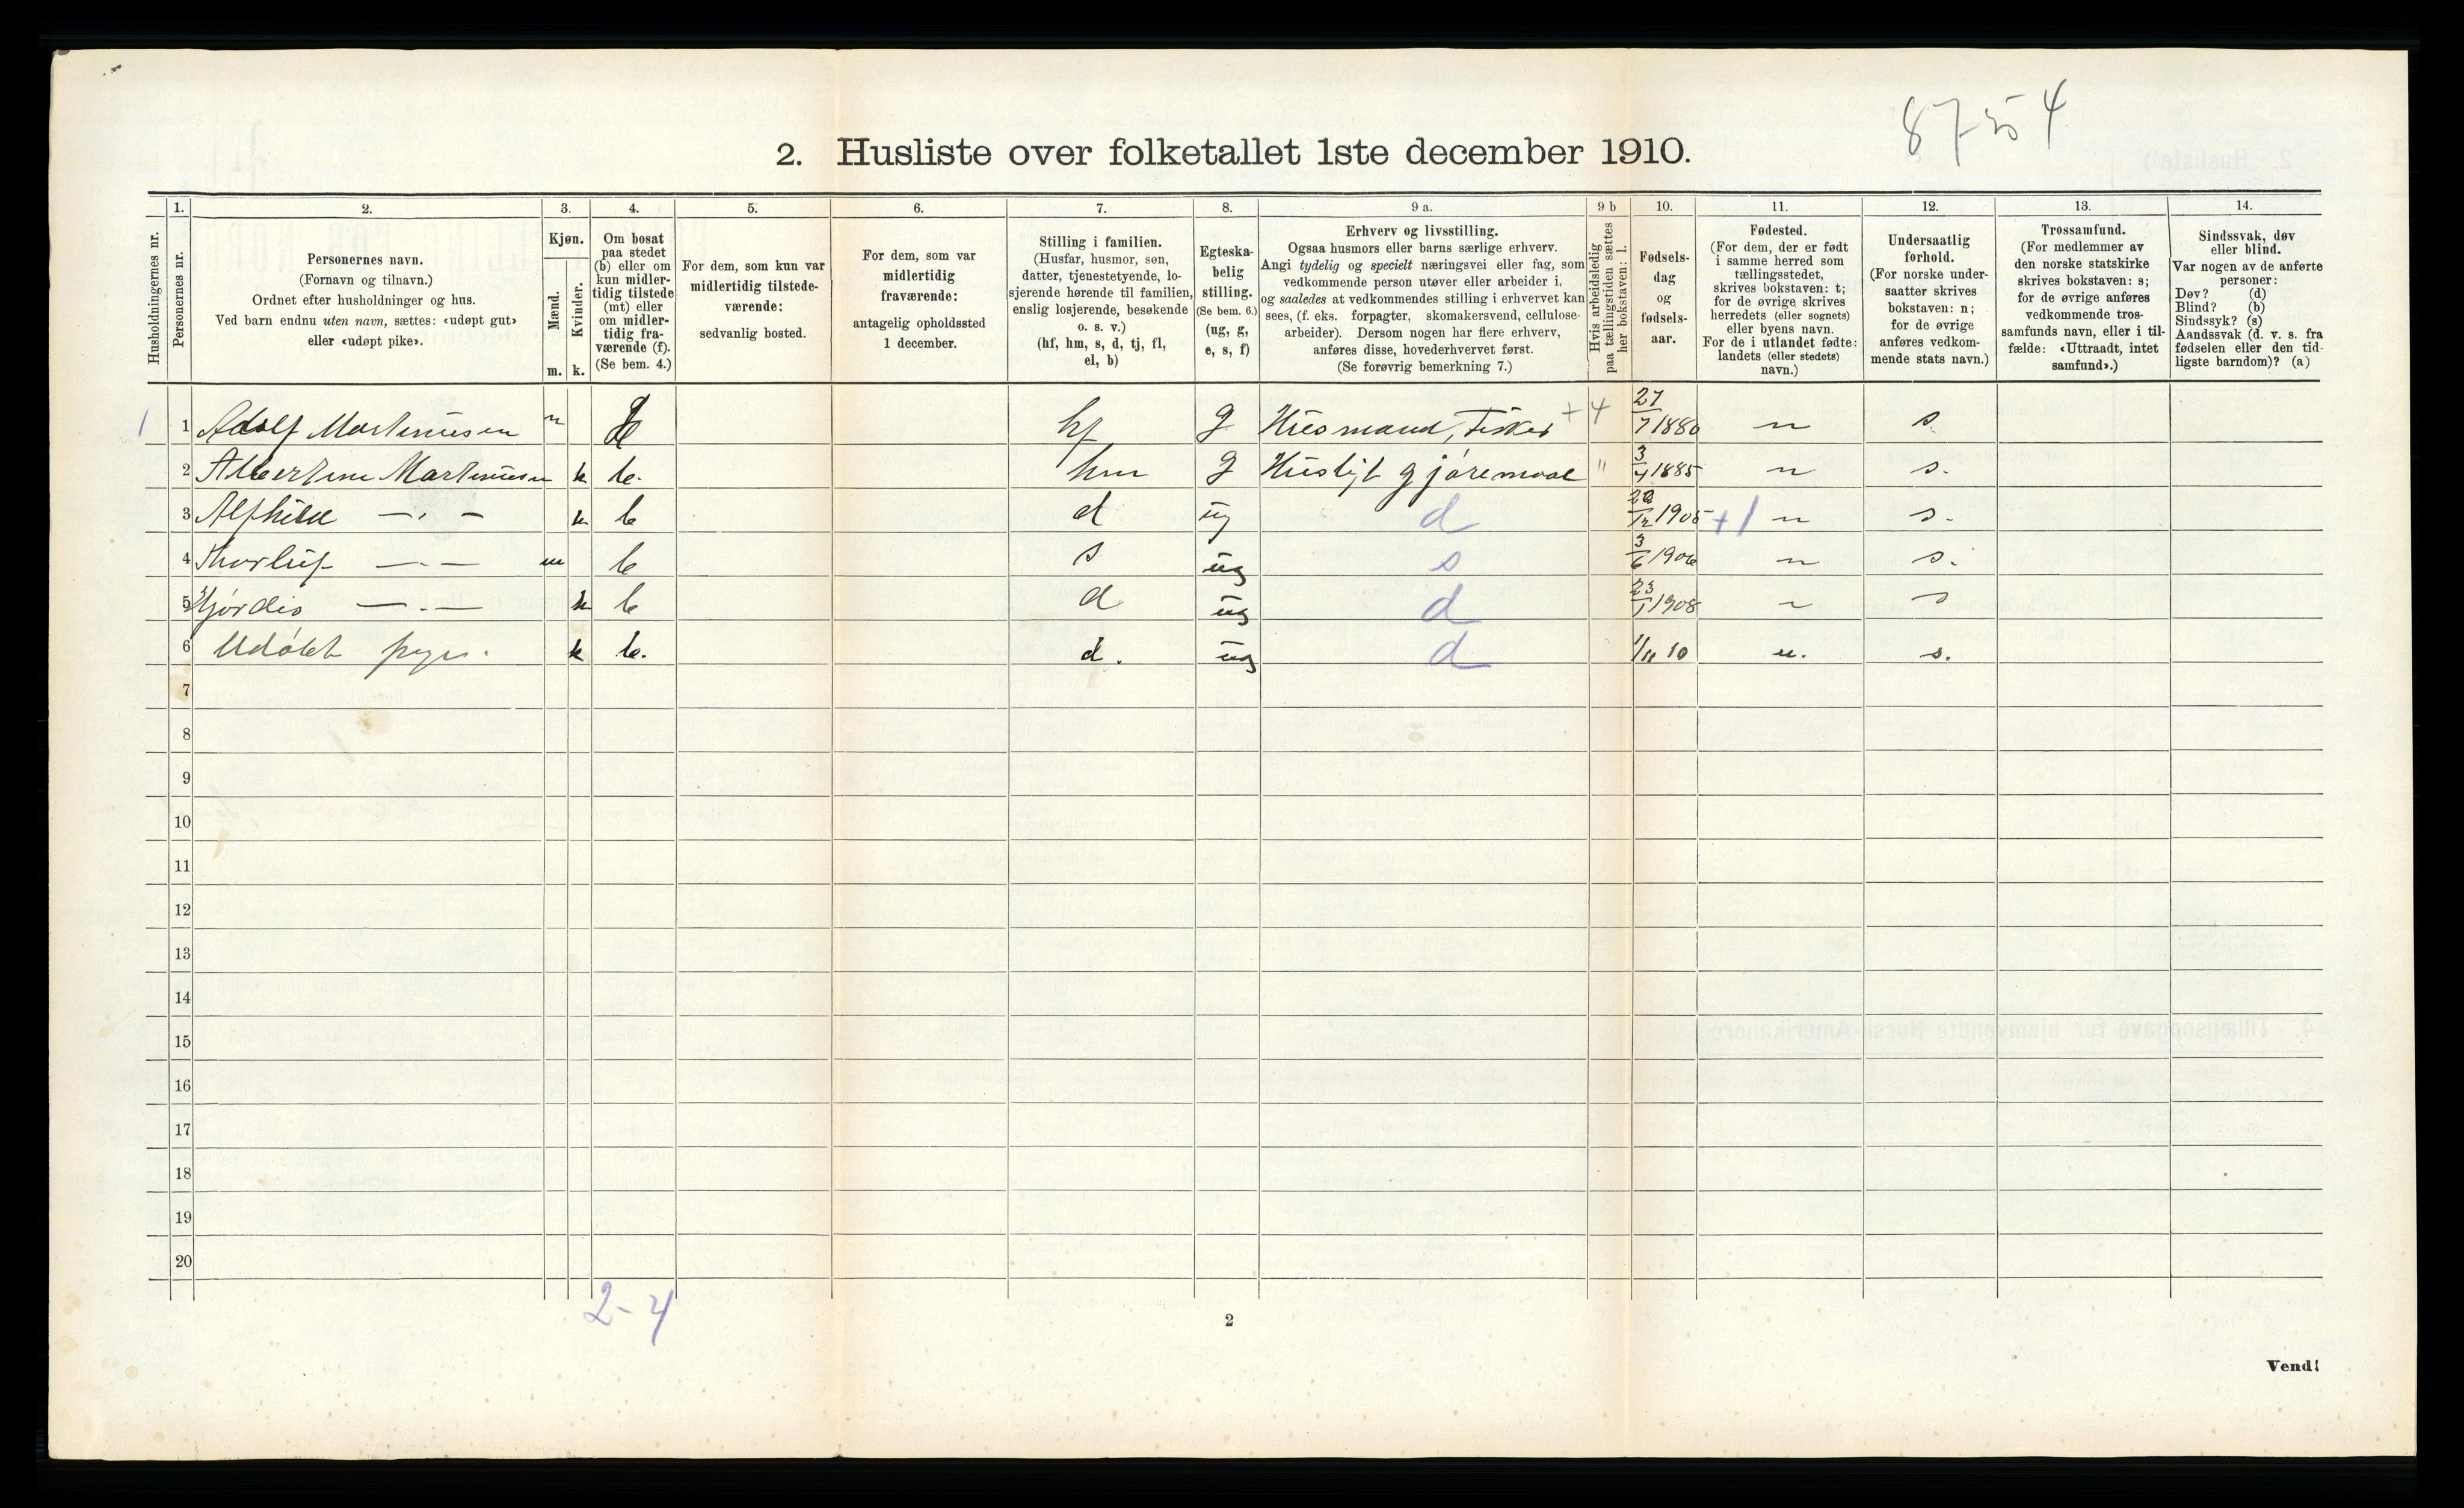 87-54
2. Husliste over folketallet 1ste december 1910.
Husholdningernes nr.
1.
Personernes nr.
2.
Personernes navn.
(Fornavn og tilnavn.)
Ordnet efter husholdninger og hus.
Ved barn endnu uten navn, sættes: «udøpt gut»
eller «udøpt pike».
3.
Kjøn.
Mænd.
Kvinder.
m. k.
4.
Om bosat
paa stedet
(b) eller om
kun midler-
tidig tilstede
(mt) eller
om midler-
tidig fra-
værende (f).
(Se bem. 4.)
5.
For dem, som kun var
midlertidig tilstede-
værende:
sedvanlig bosted.
6.
For dem, som var
midlertidig
fraværende:
antagelig opholdssted
1 december.
7.
Stilling i familien.
(Husfar, husmor, søn,
datter, tjenestetyende, lo-
sjerende hørende til familien,
enslig losjerende, besøkende
o. s. v.)
(hf, hm, s, d, tj, fl,
el, b)
8.
Egteska-
belig
stilling.
(Se bem. 6.)
(ug, g,
e, s, f)
9 a.
Erhverv og livsstilling.
Ogsaa husmors eller barns særlige erhverv.
Angi tydelig og specielt næringsvei eller fag, som
vedkommende person utøver eller arbeider i,
og saaledes at vedkommendes stilling i erhvervet kan
sees, (f. eks. forpagter, skomakersvend, cellulose-
arbeider). Dersom nogen har flere erhverv,
anføres disse, hovederhvervet først.
(Se forøvrig bemerkning 7.)
9 b
Hvis arbeidsledig
paa tællingstiden sættes
her bokstaven: l.
10.
Fødsels-
dag
og
fødsels-
aar.
11.
Fødested.
(For dem, der er født
i samme herred som
tællingsstedet,
skrives bokstaven: t;
for de øvrige skrives
herredets (eller sognets)
eller byens navn.
For de i utlandet fødte:
landets (eller stedets)
navn.)
12.
Undersaatlig
forhold.
(For norske under-
saatter skrives
bokstaven: n;
for de øvrige
anføres vedkom-
mende stats navn.)
13.
Trossamfund.
(For medlemmer av
den norske statskirke
skrives bokstaven: s;
for de øvrige anføres
vedkommende tros-
samfunds navn, eller i til-
fælde: «Uttraadt, intet
samfund».)
14.
Sindssvak, døv
eller blind.
Var nogen av de anførte
personer:
Døv? (d)
Blind? (b)
Sindssyk? (s)
Aandssvak (d. v. s. fra
fødselen eller den tid-
ligste barndom)? (a)
1 1 Adolf Martinusen m hf g Husmand, Fisker + 4 27/7 1880 n s
2 Albertine Martinusen k b. hm g Huslijt gjöremaal " 3/4 1885 n s.
3 Alfhild —"— k b d ug d /12 1905 +1 n s.
4 Thorluf —"— m b s ug s 3/6 1906 n s.
5 Hjördis —"— k b d ug d 23/1 1908 n s
6 Udöbt k b. d. ug d 1/11 10 n. s.
7
8
9
10
11
12
13
14
15
16
17
18
19
20
2-4
2
Vend!